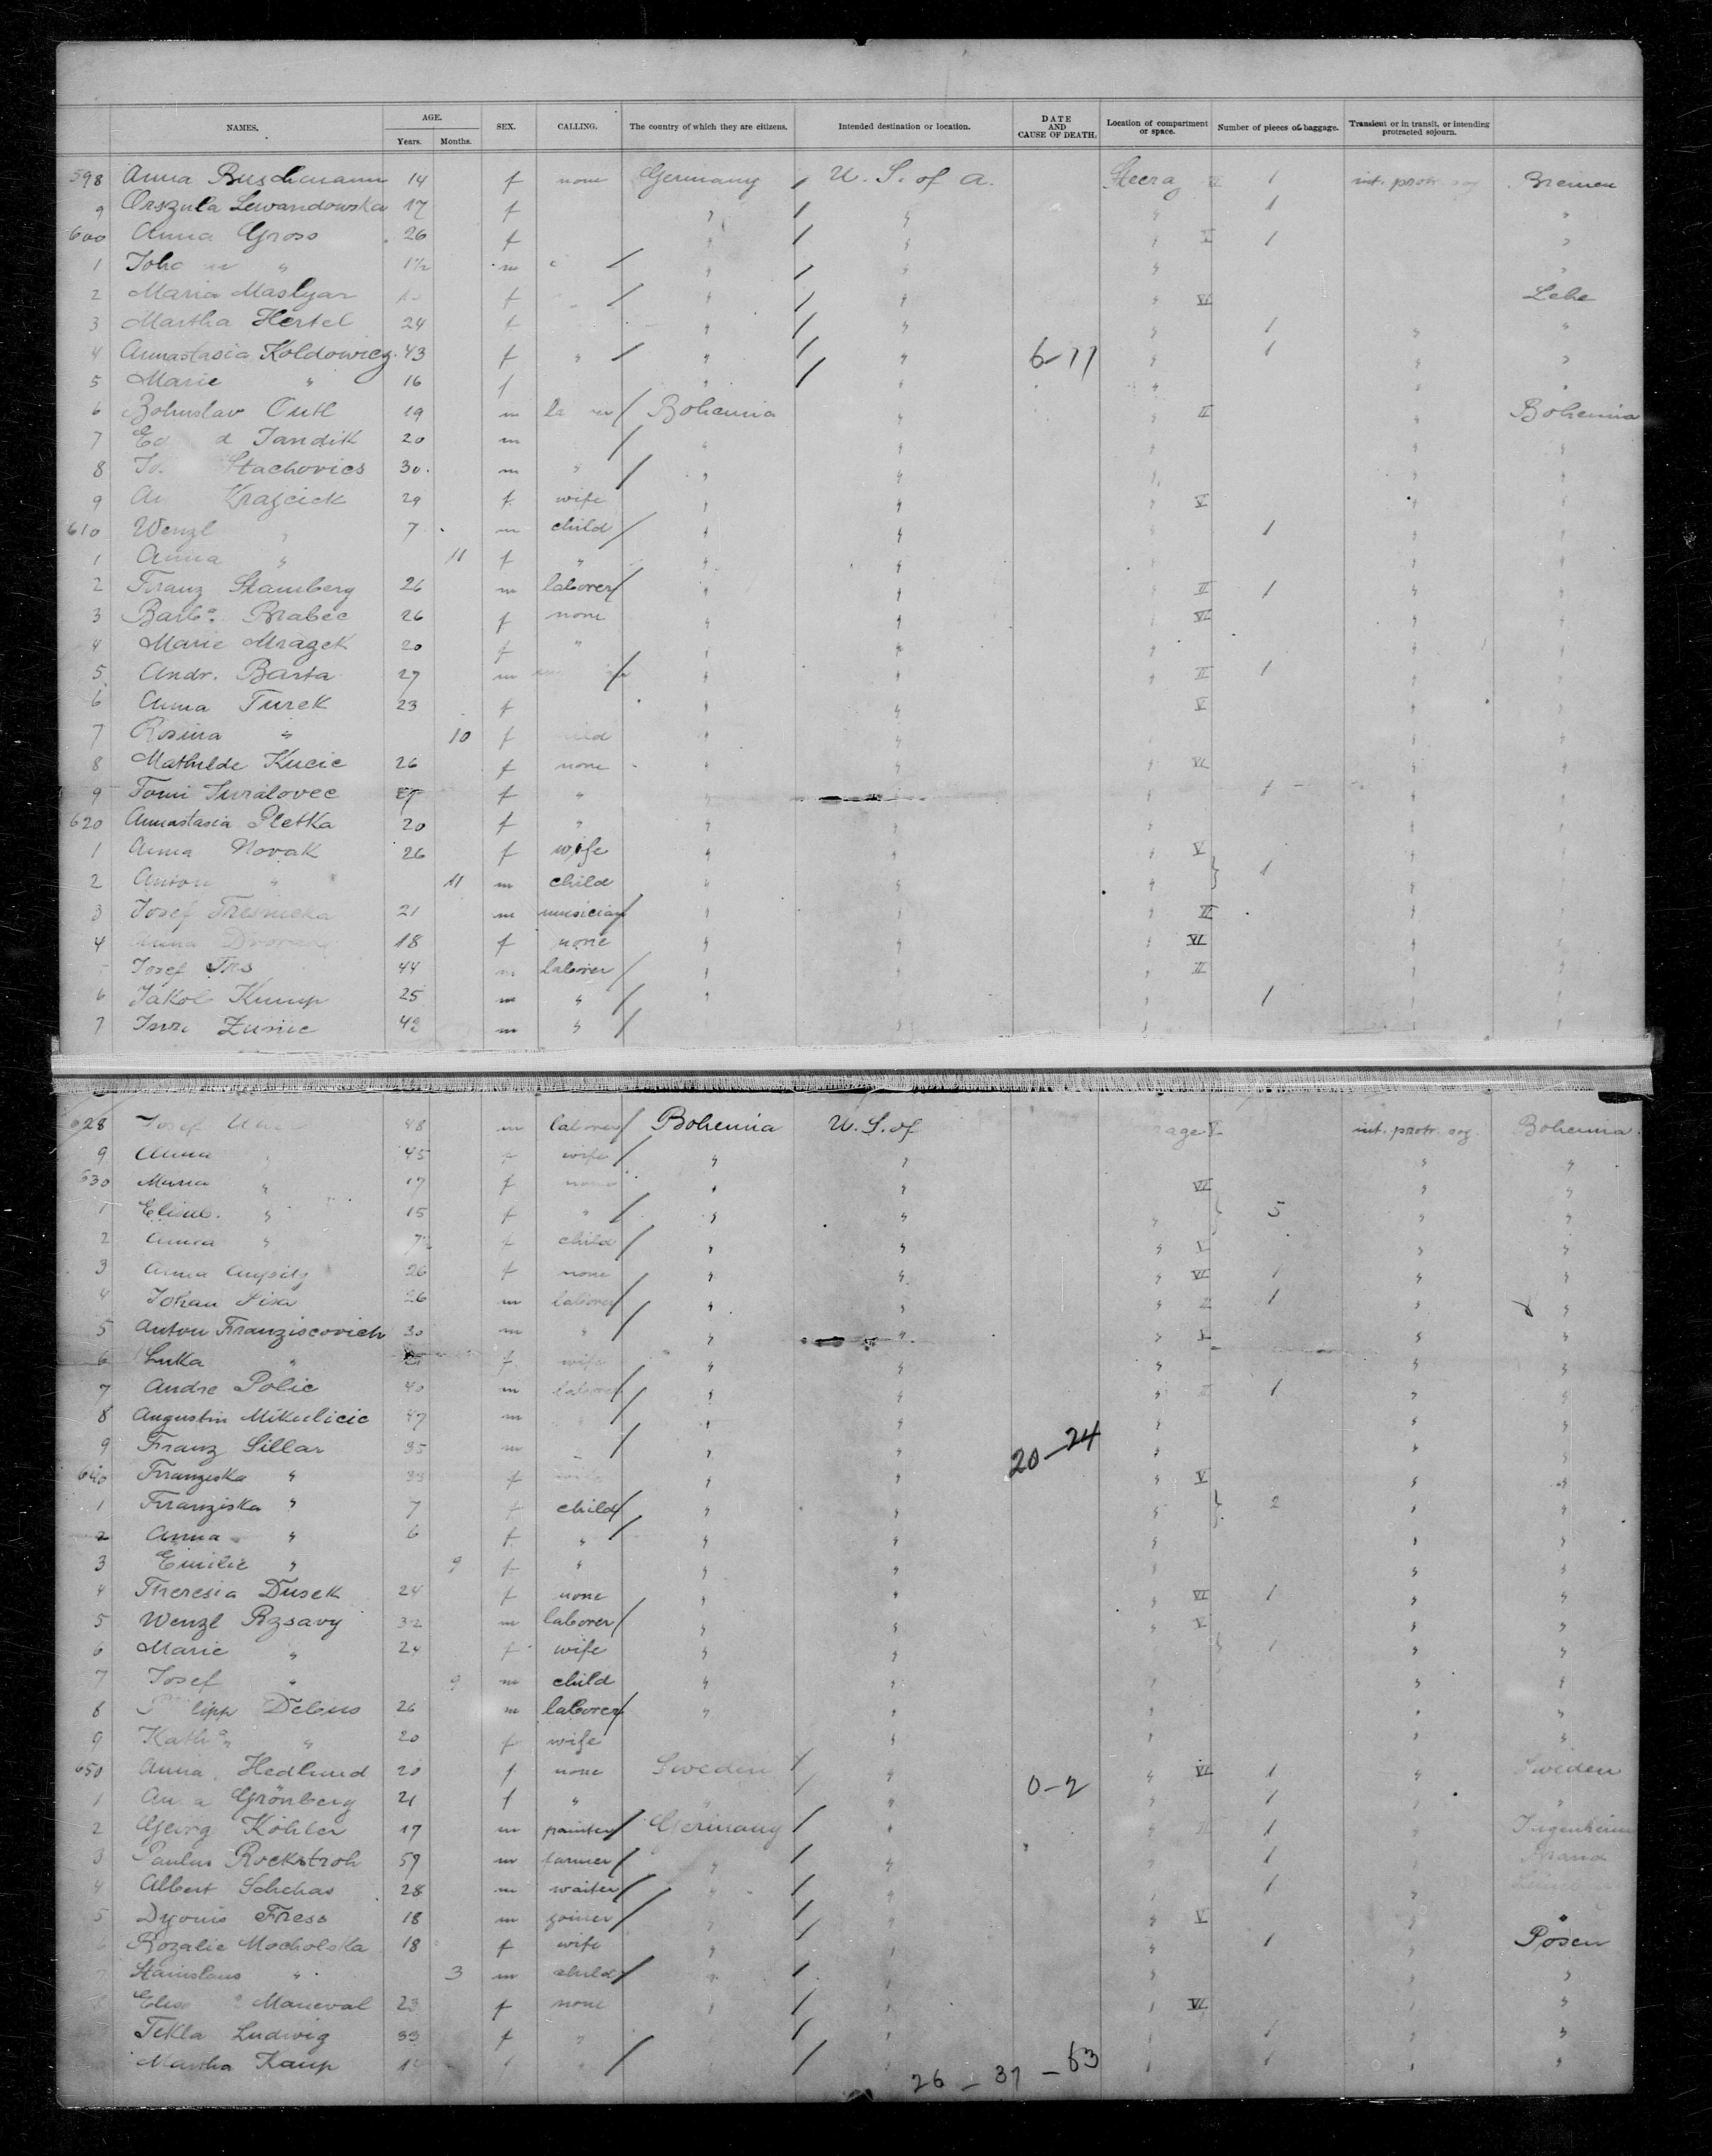 NAMES. AGE. Years. Months. SEX. CALLING. The country of which they are citizens. Intended destination or location. DATE AND CAUSE OF DEATH. Location of compartment or space. Number of pieces of baggage. Transient or in transit, or intending protracted sojourn.
598 Anna Buschmann 14 f none Germany / U. S. of A. Steerag 1 int. protr. sog. Bremen
9 Orszula Lewandowska 17 f " / " " 1 "
600 Anna Gross 26 f " / " " V 1 "
1 Joh " 1½ m / " / " " "
2 Maria Maslyar f / " / " " VI Lehe
3 Martha Hertel 24 f " / " " 1 " "
4 Annastasia Koldowicz 43 f " / " / " 6-11 " 1 " "
5 Marie " 16 f " / " " " "
6 Bohuslav Outl 19 m / Bohemia " " II " Bohemia
7 Jandik 20 m / " " " " "
8 Stachovics 30 m " / " " " " "
9 Krajcick 29 f wife " " " V " "
610 Wenzl " 7 m child / " " " 1 " "
1 Anna " 11 f " " " " " "
2 Franz Stamberg 26 m laborer / " " " II 1 " "
3 Barbª. Brabec 26 f none " " " VI " "
4 Marie Mrazek 20 f " " " " " "
5 Andr. Barta 27 m / " " " II 1 " "
6 Anna Turek 23 f " " V " "
7 Rosina " 10 f " " " " "
8 Mathilde Kucic 26 f none " " " VI " "
9 Tomi Juralovec f " " " " 1 " "
620 Annastasia Pletka 20 f " " " " " "
1 Anna Novak 26 f wife " " " V " "
2 Anton " 11 m child " " " } 1 " "
3 Josef Tresnicka 21 m musician / " " " II " "
4 Dvorak 18 f none " " " VI " "
Josef Trs 44 m laborer / " " " II " "
6 Jakob Kump 25 m " / " " 1 " "
7 Zunic 43 m " / " " " "
628 Josef 48 m laborer / Bohemia U. S. of rage int. protr. sog. Bohemia.
9 Anna " 45 f wife / " " " "
630 " 17 f none " " VI " "
1 Elisab. " 15 f " / " " " } 5 " "
2 Anna " 7½ f child / " " " V " "
3 Anna Auspitz 26 f none " " " VI 1 " "
4 Johan 26 m laborer / " " " 2 1 " "
5 Anton Franziscovich 30 m " / " " " V " "
6 Luka " f wife " " " " "
7 Andre Polic 40 m laborer / " " " II 1 " "
8 Augustin Mikulicic 47 m / " " " " "
9 Franz Sillar 35 m / " " 20-24 " " "
640 Franziska " 33 f " " " V " "
1 Franziska " 7 f child / " " " } 2 " "
2 Anna " 6 f " / " " " " "
3 Emilie " 9 f " " " " " "
4 Theresia Dusek 24 f none " " " VI 1 " "
5 Wenzl Rzsavy 32 m laborer / " " " V " "
6 Marie " 24 f wife " " " } 1 " "
7 Josef " 9 m child " " " "
8 lipp Debus 26 m laborer / " " " " "
9 Kathª. " 20 f wife " " " "
650 Anna Hedlund 20 f none Sweden / " 0-2 " VI 1 " Sweden
1 Grönberg 21 f " " / " " 1 " "
2 Georg Köhler 17 m painter / Germany / " " II 1 " Jugenheim
3 Paulus Rockstroh 59 m farmer / " / " " 1 "
4 Albert Schchas 28 m waiter / " / " " 1 "
5 Dyonis Fress 18 m joiner / " / " " V " "
Rozalie Mocholska 18 f wife " / " " 1 " Posen
Stanislaus " 3 m child / " / " " " "
Maneval 23 f none " / " " VI " "
Tekla Ludwig 33 f " / " " 1 " "
Martha Kaup f " / / " " 1 " "
26 - 37 - 63